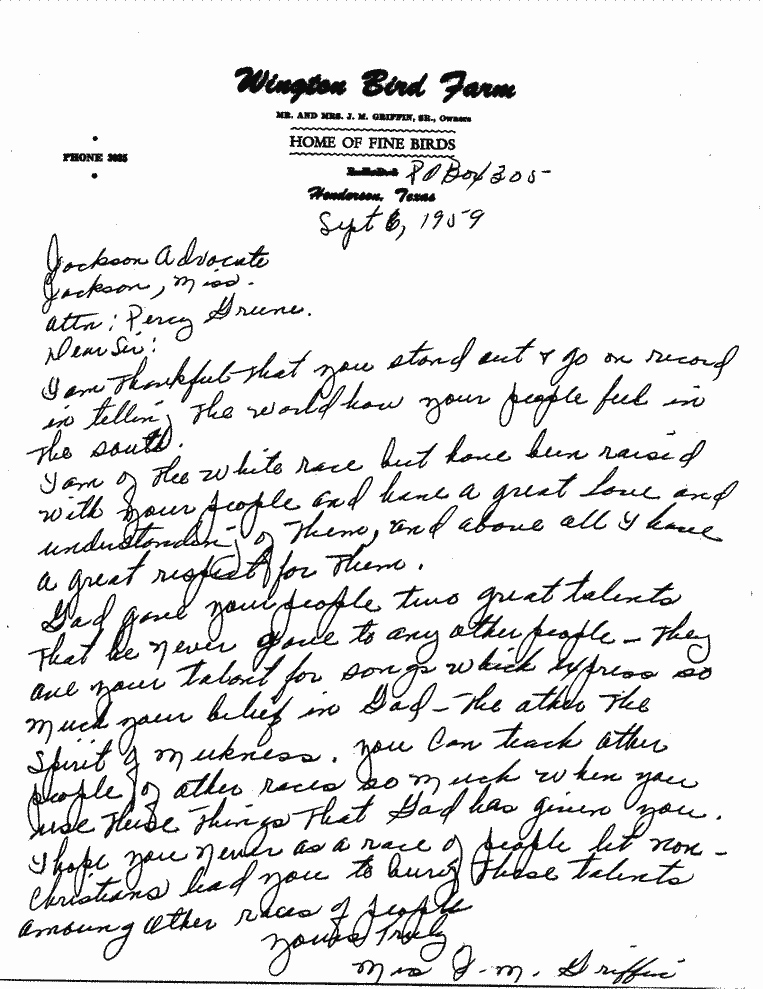 Wington Bird Farm
MR. AND MRS. J. M. GRIFFIN, SR., Owners
HOME OF FINE BIRDS
PHONE 3025
P O Box 305
Henderson, Texas
Sept 6, 1959
Jackson Advocate
Jackson, Miss.
Attn: Percy Greene.
Dear Sir:
I am thankful that you stand out & go on record
in telling the world how your people feel in
the south.
I am of the white race but have been raised
with your people and have a great love and
understanding of them, and above all I have
a great respect for them.
God gave your people two great talents
that he never gave to any other people - they
are your talent for songs which express so
much your belief in God - the other the
spirit of meekness. You can teach other
people of other races so much when you
use these things that God has given you.
I hope you never as a race of people let non-
Christians lead you to bury these talents
amoung other races of people
Yours Truly,
Mrs J. M. Griffin